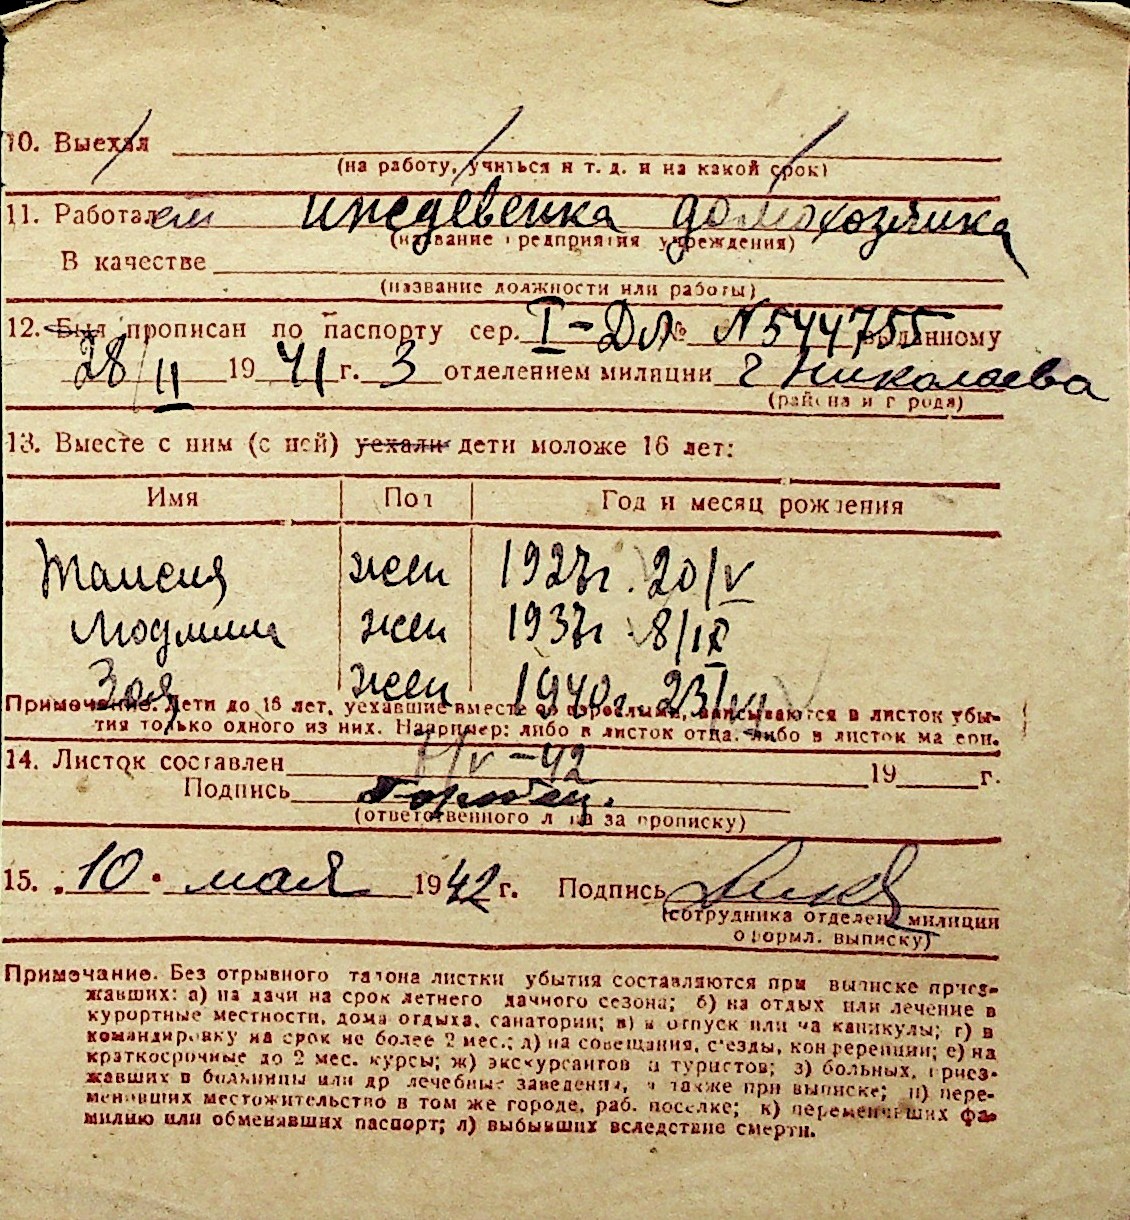 10. Выехал
(на работу, учиться и т. д. и на какой срок)
11. Работает иждевенка домохозяика
(название предприятия учреждения)
В качестве
(название должности или работы)
12. Был прописан по паспорту сер. I-Дл № N544755 выданному
28/II 1941 г. 3 отделением милиции г Николаева
(района и города)
13. Вместе с ним (с ней) уехали дети моложе 16 лет:
Имя Пол Год и месяц рождения
Таисия жен 1927г. 20/V
Людмила жен 1937г 8/IX
Зоя жен 1940г. 23/VI
Примечание. Дети до 16 лет, уехавшие вместе со взрослыми, вписываются в листок убы-
тия только одного из них. Например: либо в листок отца, либо в листок матери.
14. Листок составлен /V-42 19 г.
Подпись
(ответственного лица за прописку)
15. 10 мая 1942 г. Подпись
(сотрудника отделен. милиции
оформл. выписку)
Примечание. Без отрывного талона листки убытия составляются при выписке приез-
жавших: а) на дачи на срок летнего дачного сезона; б) на отдых или лечение в
курортные местности, дома отдыха, санатории; в) в отпуск или на каникулы; г) в
командировку на срок не более 2 мес.; д) на совещания, съезды, конференции; е) на
краткосрочные до 2 мес. курсы; ж) экскурсантов и туристов; з) больных, приез-
жавших в больницы или др лечебные заведения, а также при выписке; и) пере-
менивших местожительство в том же городе, раб. поселке; к) переменивших фа-
милию или обменявших паспорт; л) выбывших вследствие смерти.